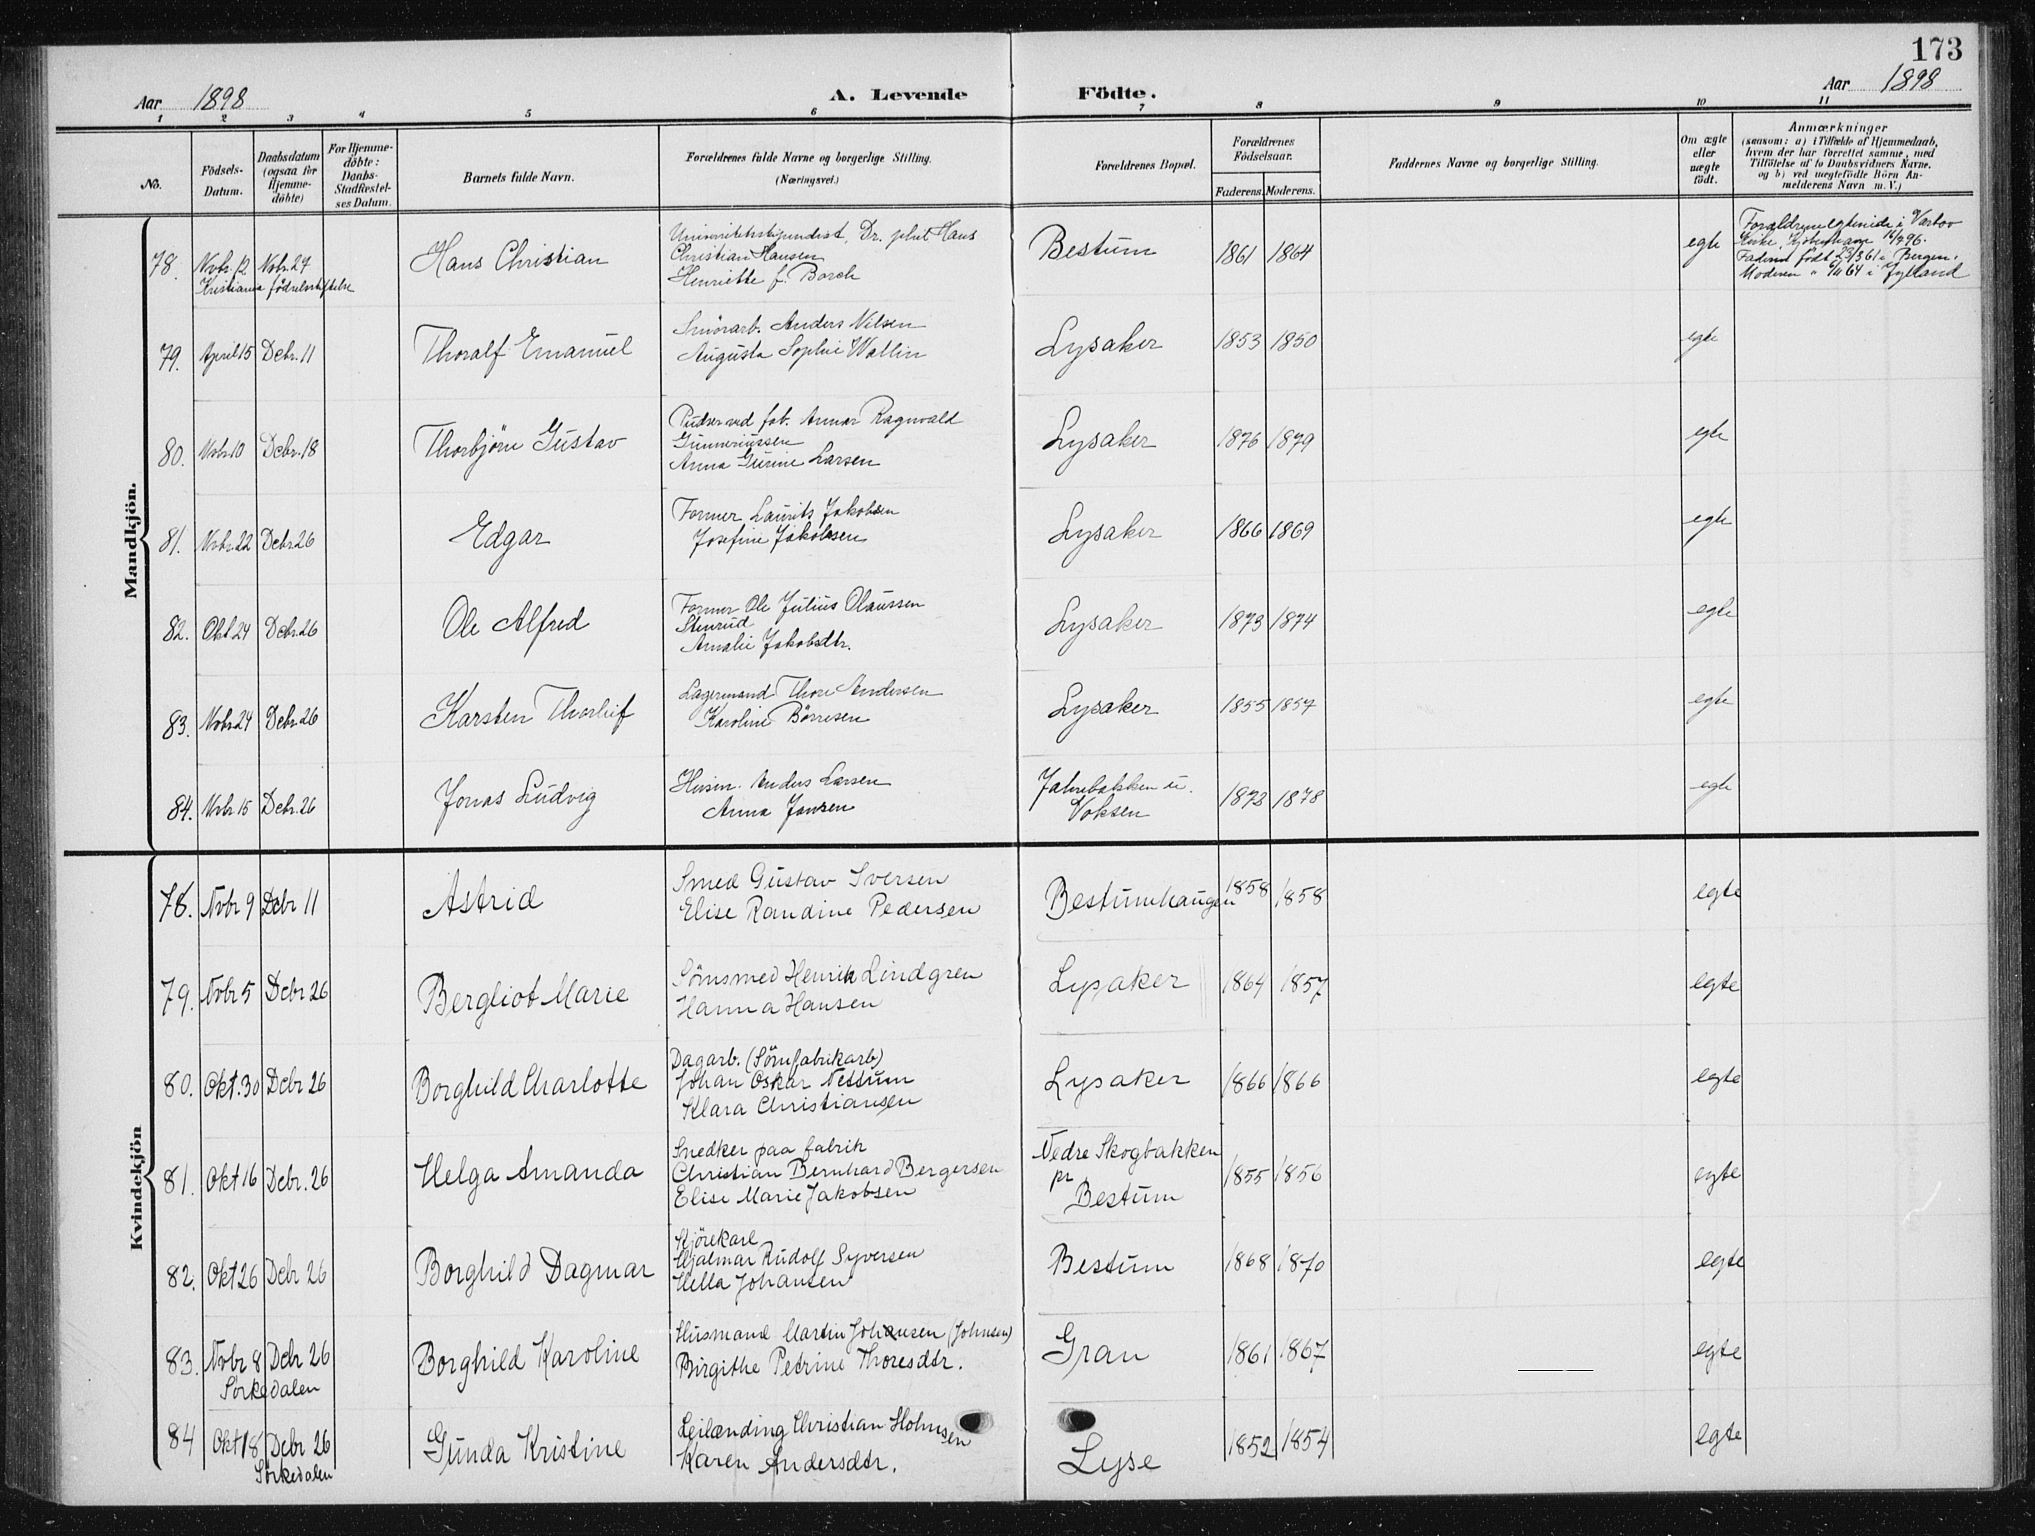 173
Aar 1898
A. Levende Födte.
Aar 1898
1 2 3 4 5 6 7 8 9 10 11
No.
Födsels-
Datum.
Daabsdatum
(ogsaa for
Hjemme-
döbte)
For Hjemme-
döbte:
Daabs-
Stadfæstel-
ses Datum.
Barnets fulde Navn.
Forældrenes fulde Navne og borgerlige Stilling.
(Næringsvei.)
Forældrenes Bopæl.
Forældrenes
Födselsaar.
Faderens. Moderens.
Faddernes Navne og borgerlige Stilling.
Om ægte
eller
uægte
födt.
Anmærkninger
(saasom: a) i Tilfælde af Hjemmedaab,
hvem der har forrettet samme, med
Tilföielse af to Daabsvidners Navne,
og b) ved uægtefödte Börn An-
melderens Navn m. V.)
Mandkjön.
78. Novbr. 12 Nobr. 27
Kristiania födselsstiftelse
Hans Christian
Universitetsstipendiat, Dr. phil Hans
Christian Hansen
Henriette f. Borch
Bestum 1861 1864 egte
Forældrene egteviede i Vartov
Kirke, Kjöbenhavn
Faderen födt i Bergen.
Moderen " i Jylland
79. April 15 Debr. 11 Thoralf Emanuel
Anders Nilsen
Augusta Sophie Wallin
Lysaker 1853 1850 egte
80. Nobr. 10 Debr. 18 Thorbjörn Gustav
Pudser ved fab. Annar Ragnvald
Gunneriussen
Anna Gurine Larsen
Lysaker 1876 1879 egte
81. Nobr. 22 Debr. 26 Edgar
Former Laurits Jakobsen
Josefine Jakobsen
Lysaker 1866 1869 egte
82. Okt. 24 Debr. 26 Ole Alfred
Former Ole Julius Olaussen
Stenrud
Amalie Jakobsdtr.
Lysaker 1873 1874 egte
83. Nobr. 24 Debr. 26 Karsten Thorleif
Lagermand Thore Andersen
Karoline Börresen
Lysaker 1855 1857 egte
84. Nobr. 15 Debr. 26 Jonas Ludvig
Husm. Anders Larsen
Anna Jansen
Jahrebakken u.
Voksen
1873 1878 egte
Kvindekjön
78. Nvbr 9 Debr 11 Astrid
Smed Gustav Iversen
Elise Randine Pedersen
Bestumhaugen 1858 1858 egte
79. Nvbr 5 Debr 26 Bergliot Marie
Sömsmed Henrik Lindgren
Hanna Hansen
Lysaker 1864 1857 egte
80. Okt. 30 Debr 26 Borghild Charlotte
Dagarb. (Sömfabrikarb)
Johan Oskar Nettum
Klara Christiansen
Lysaker 1866 1866 egte
81. Okt 16 Debr. 26 Helga Amanda
Snedker paa fabrik
Christian Bernhard Bergersen
Elise Marie Jakobsen
Nedre Skogbakken
pr
Bestum
1855 1856 egte
82. Okt 26 Debr 26 Borghild Dagmar
Kjörekarl
Hjalmar Rudolf Syversen
Hella Johansen
Bestum 1868 1870 egte
83. Nvbr 8 Debr 26
Sörkedalen
Borghild Karoline
Husmand Martin Johansen (Johnsen)
Birgithe Petrine Thoresdtr.
Gran 1861 1867 egte
84 Okt 18 Debr 26
Sörkedalen
Gunda Kristine
Leilænding Christian Holmsen
Karen Andersdtr.
Lyse 1852 1854 egte